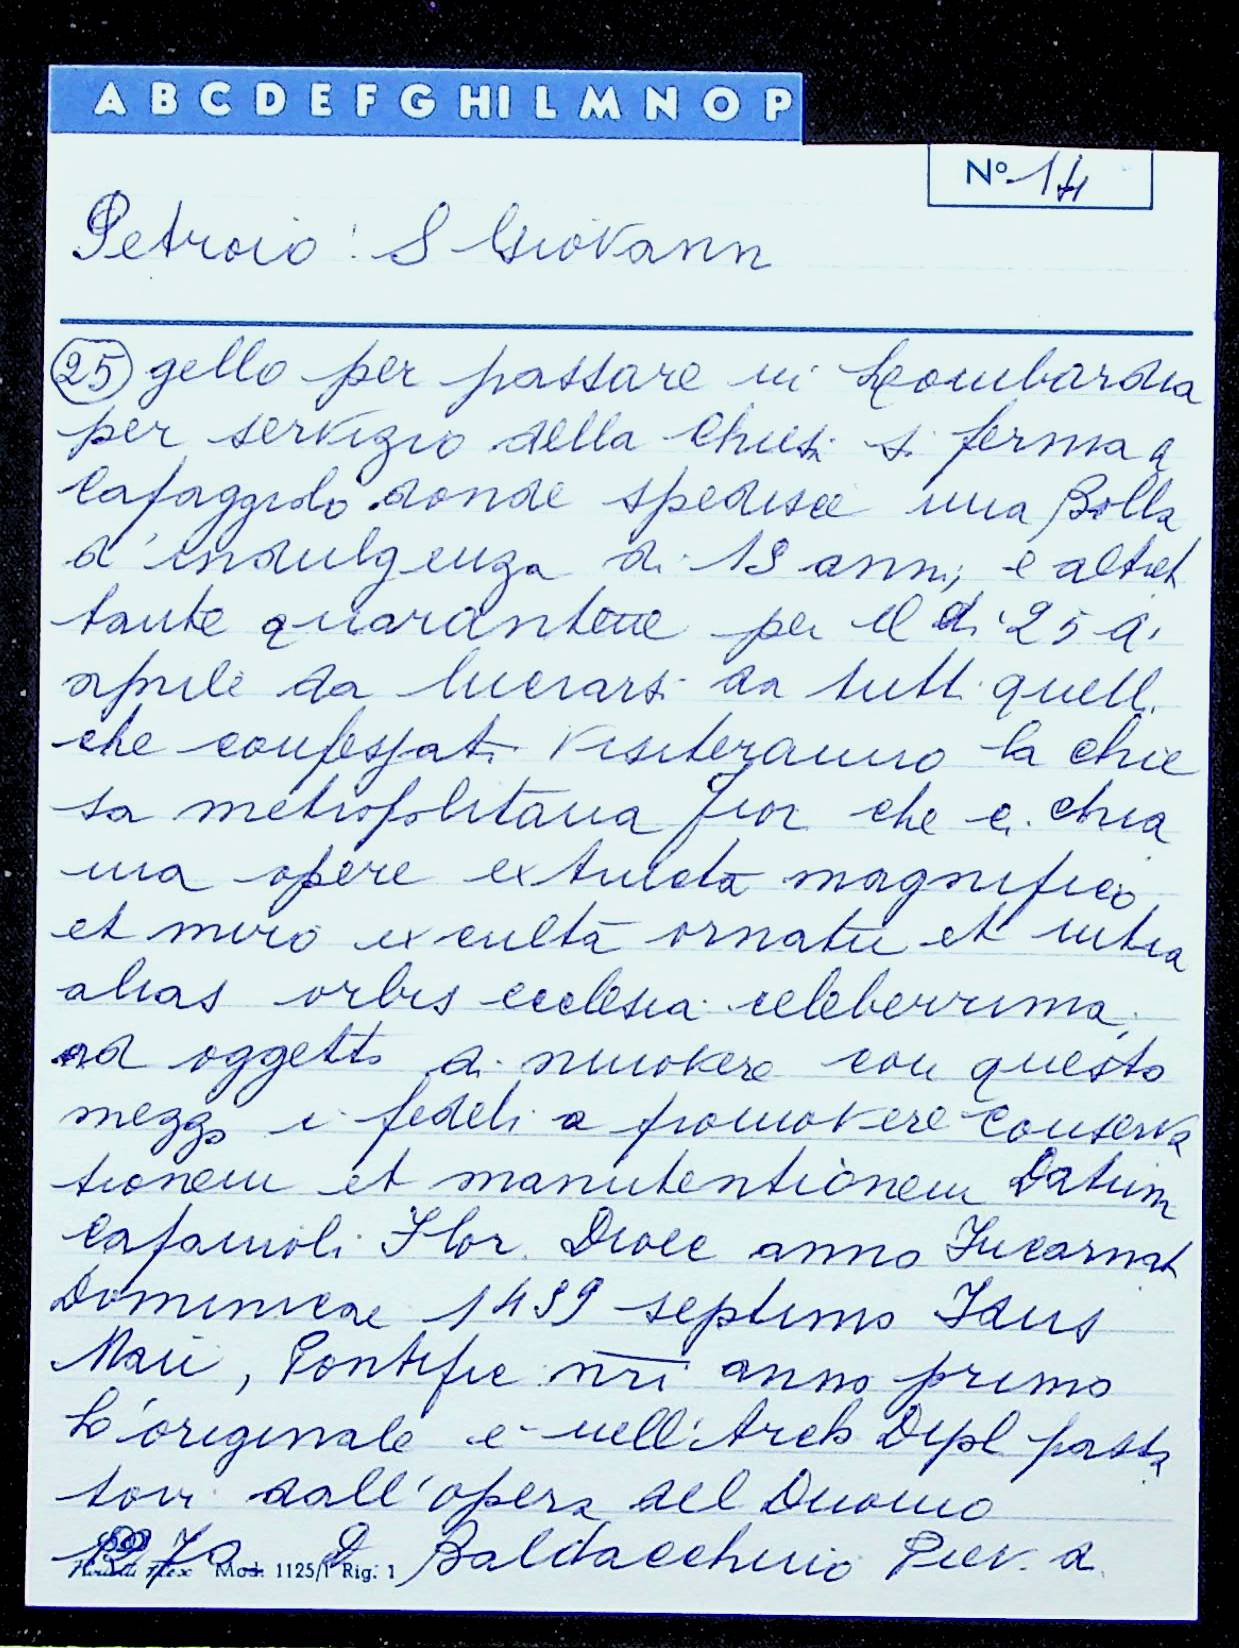 A B C D E F G HI L M N O P
Nº 14
Petroio: S Giovann
25 gello per passare in Lombardia
per servizio della Chiesi si ferma a
Cafaggiolo donde spedisce una Bolla
d'indulgenza di 19 anni, e altret
tante quarantene per il di 25 di
aprile da lucrarsi da tutti quelli
che confessati visiteranno la chie
sa metropolitana fior che ei chia
ma opere extructa magnifico
et miro exculta ornatu et intra
alias orbis ecclesia celeberrima,
ad oggetto di muovere con questo
mezzo i fedeli a promovere conserva
tionem et manutentionem Datum
Cafaiioli Flor. Dioce anno Incarnat
Dominicae 1459 septimo Idus
Maii, Pontific nri anno primo
L'originale e nell'Arch Dipl passa
tovi dall'opera del Duomo
1270 D Baldacchino Piev. d.
Mod. 1125/1 Rig. 1